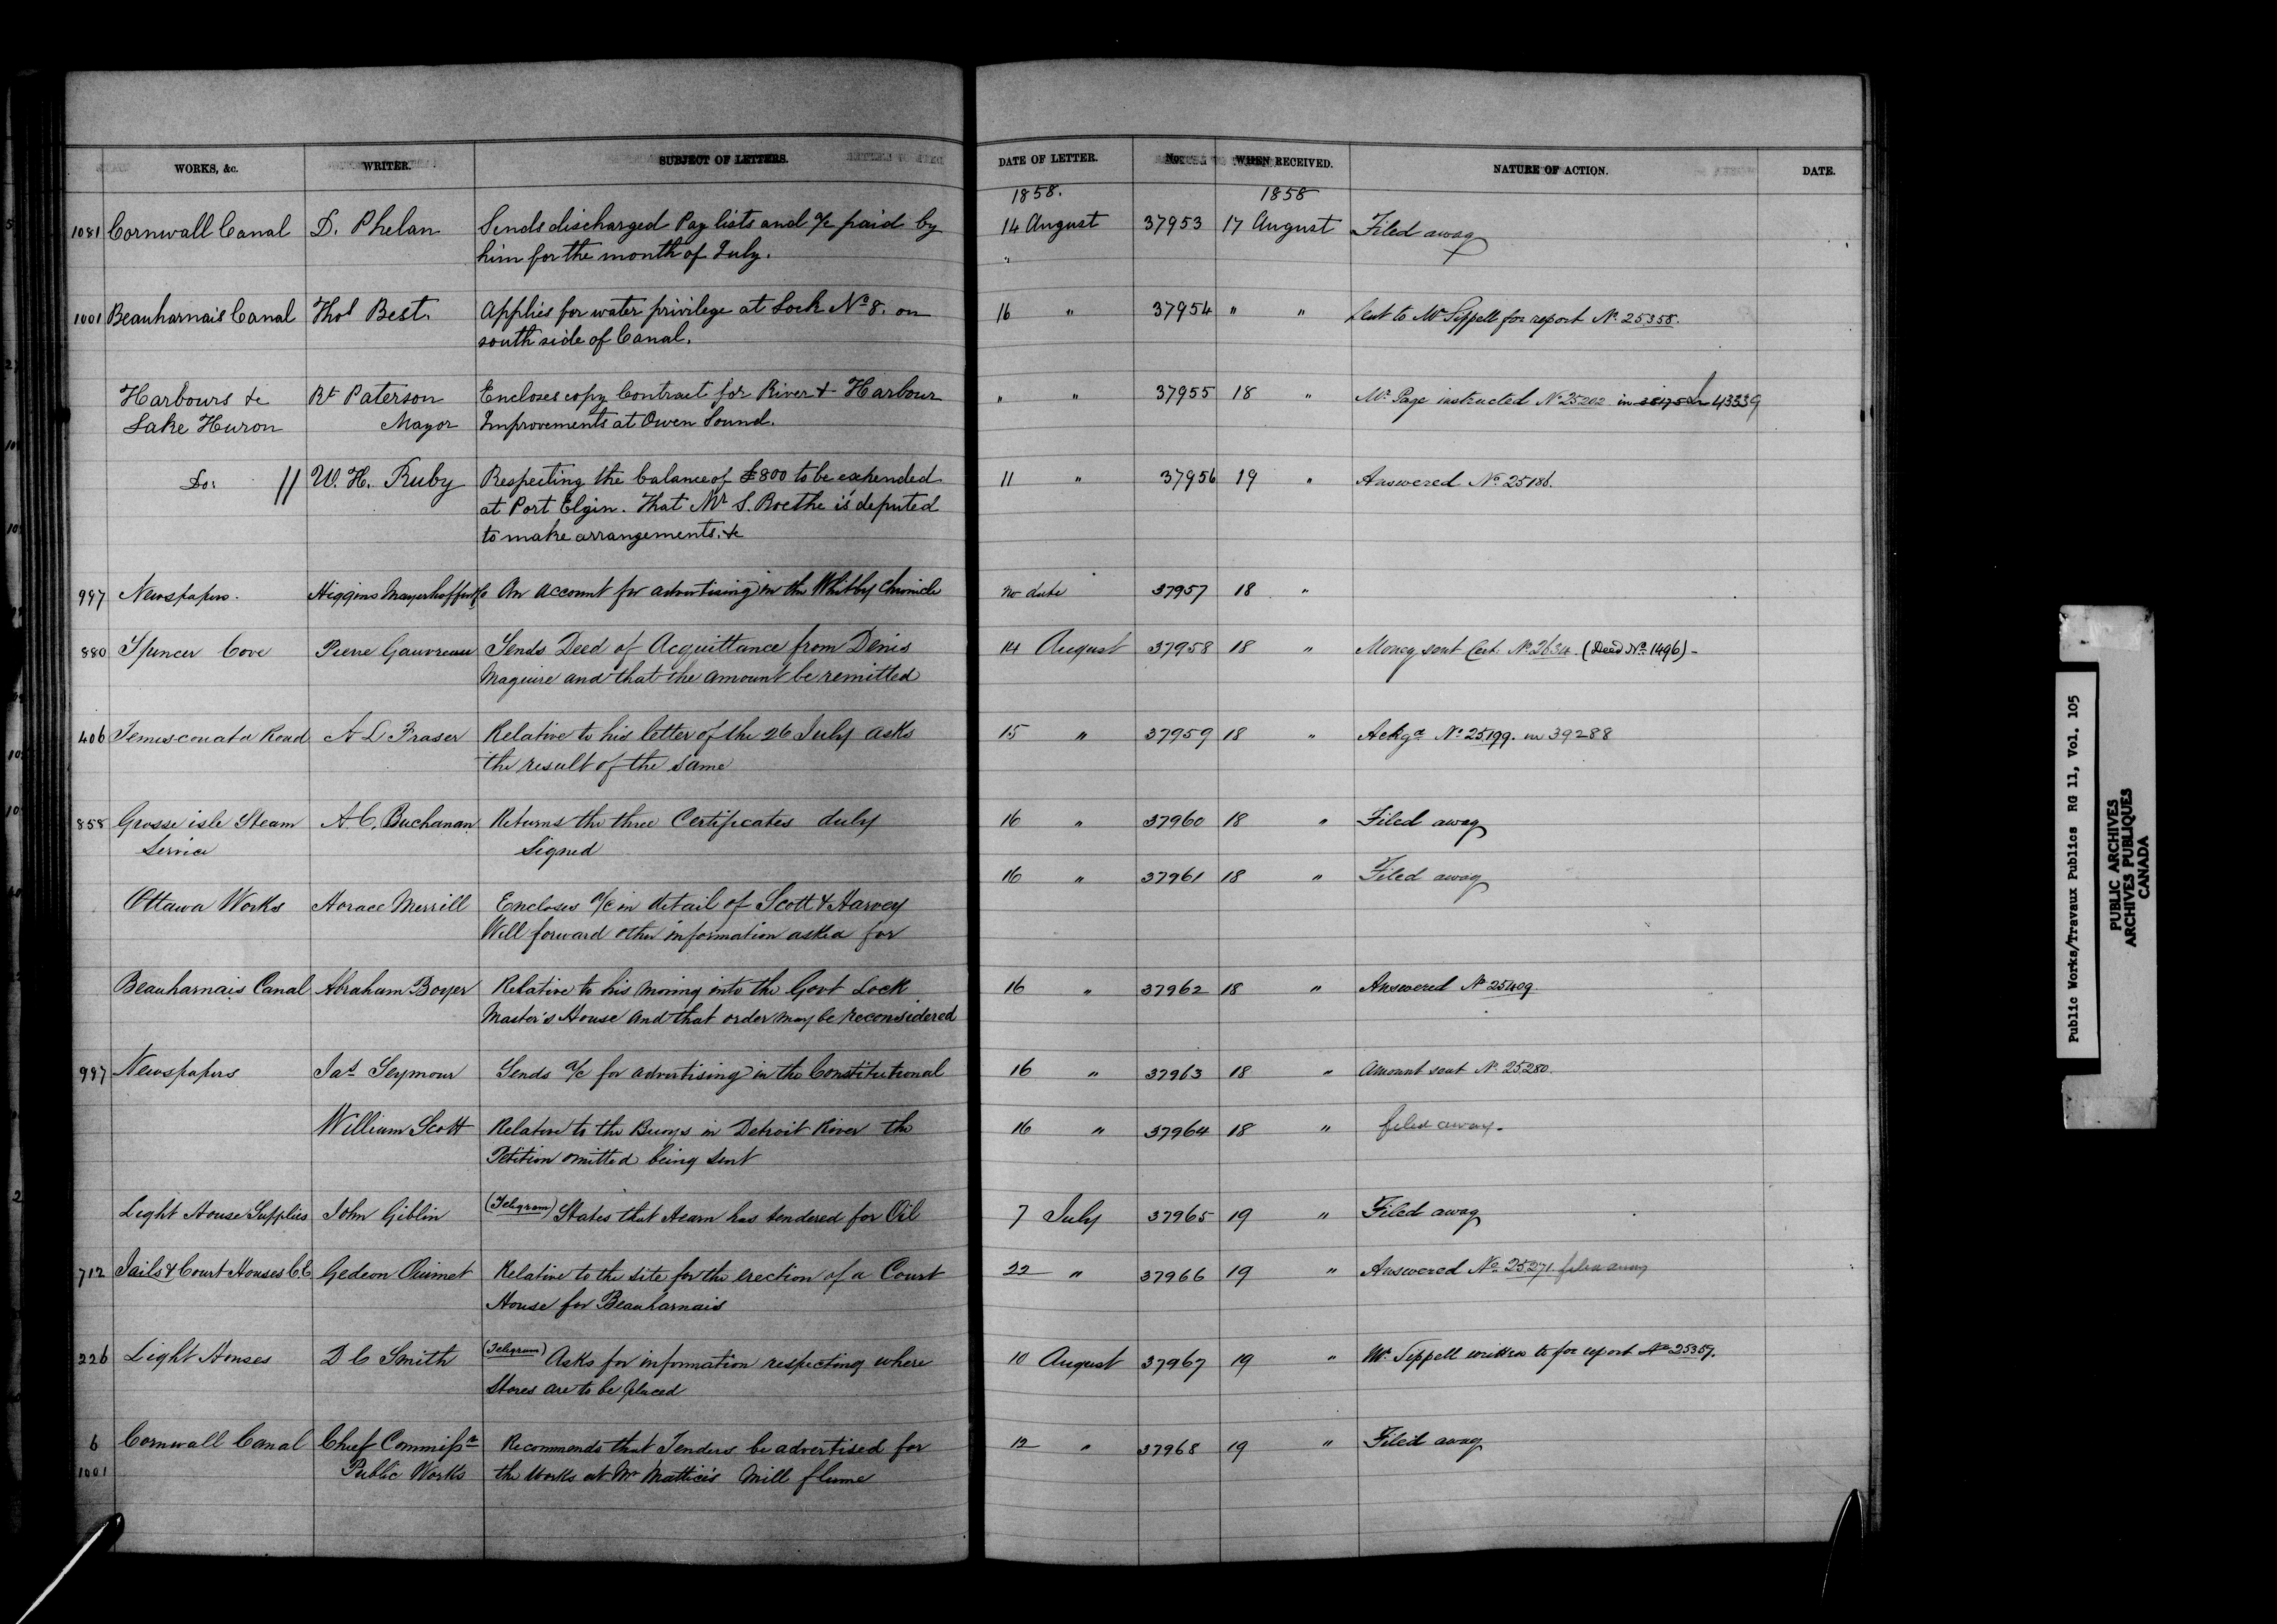 WORKS, &c. WRITER. SUBJECT OF LETTERS. DATE OF LETTER. No. WHEN RECEIVED. NATURE OF ACTION. DATE.
1858. 1858
1081 Cornwall Canal D. Phelan Sends discharged Pay lists and a/c paid by 14 August 37953 17 August Filed away
him for the month of July. "
1001 Beauharnais Canal Thos Best. Applies for water privilege at Lock No 8. on 16 " 37954 " " Sent to Mr Sippell for report No. 25358.
south side of Canal.
Harbours &c Rt Paterson Encloses copy Contract for River & Harbour " " 37955 18 " Mr Page instructed No 25202 in 43339
Lake Huron Mayor Improvements at Owen Sound.
Do: // W. H. Ruby Respecting the balance of £800 to be expended 11 " 37956 19 " Answered No. 25186.
at Port Elgin. That Mr S. Roethe is deputed
to make arrangements. &c
997 Newspapers. Higgins Mayerhoffer & Co An account for advertising in the Whitby Chronicle no date 37957 18 "
880 Spencer Cove Pierre Gauvreau Sends Deed of Acquittance from Denis 14 August 37958 18 " Money sent Cert. No. 2634. (Deed No. 1496) -
Maguire and that the amount be remitted
406 Temiscouata Road A L Fraser Relative to his letter of the 26 July asks 15 " 37959 18 " Ackgd No. 25199. in 39288
the result of the same
858 Grosse isle Steam A. C. Buchanan Returns the three Certificates duly 16 " 37960 18 " Filed away
Service Signed
16 " 37961 18 " Filed away
Ottawa Works Horace Merrill Encloses a/c in detail of Scott & Harvey
Will forward other information asked for
Beauharnais Canal Abraham Boyer Relative to his moving into the Govt Lock 16 " 37962 18 " Answered No 25409.
Master's House and that order may be reconsidered
997 Newspapers Jas Seymour Sends a/c for advertising in the Constitutional 16 " 37963 18 " Amount sent No 25280.
William Scott Relative to the Buoys in Detroit River the 16 " 37964 18 " filed away.
Petition omitted being sent
Light House Supplies John Giblin (Telegram) States that Hearn has tendered for Oil 7 July 37965 19 " Filed away
712 Jails & Court Houses C.E Gedeon Ouimet Relative to the site for the erection of a Court 22 " 37966 19 " Answered No. 25271. filed away
House for Beauharnais
226 Light Houses D C Smith (Telegram) Asks for information respecting where 10 August 37967 19 " Mr. Sippell written to for report No 25357.
Stores are to be placed
6 Cornwall Canal Chief Commissr Recommends that Tenders be advertised for 12 " 37968 19 " Filed away
1001 Public Works the works at Mr Mattice's Mill flume
Public Works/Travaux Publics RG 11, Vol. 105
PUBLIC ARCHIVES
ARCHIVES PUBLIQUES
CANADA